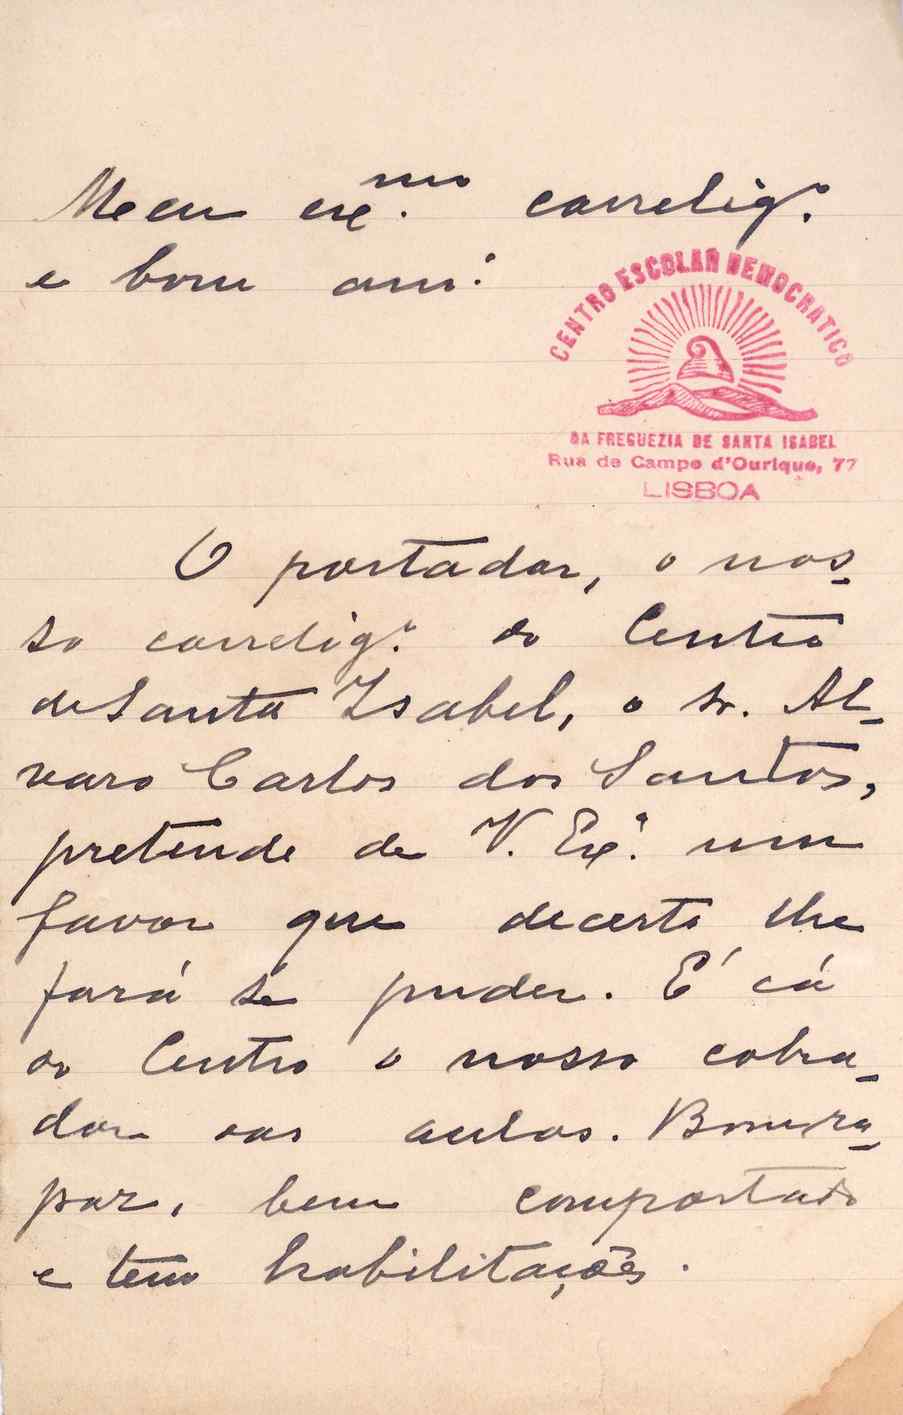 Meu exᵐᵒ. correligº.
e bom amº.
CENTRO ESCOLAR DEMOCRATICO
DA FREGUEZIA DE SANTA ISABEL
Rua de Campo d'Ourique, 77
LISBOA
O portador, o nos-
so correligº. do Centro
de Santa Isabel, o sr. Al-
varo Carlos dos Santos,
pretende de V. Exª. um
favor que decerto lhe
fará se puder. É cá
do Centro o nosso cobra-
dor das aulas. Bom ra-
paz, bem comportado
e tem habilitações.